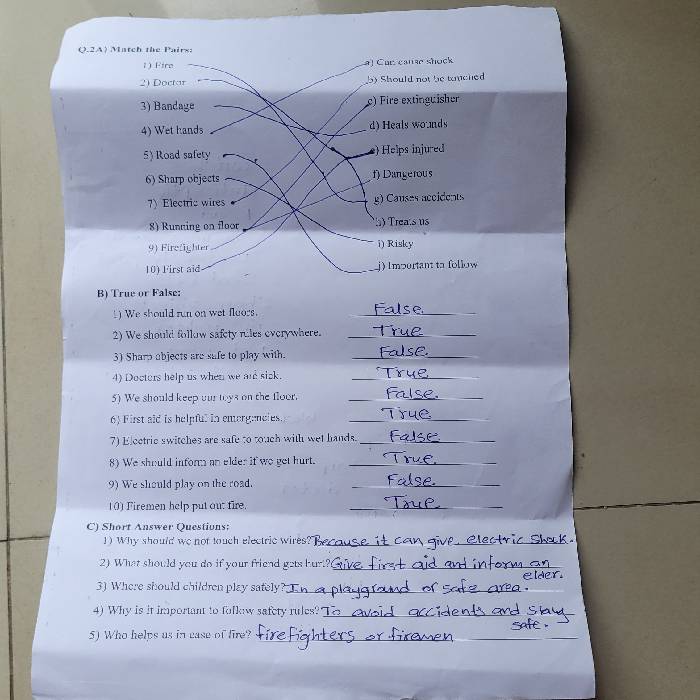 Q.2A) Match the Pairs:
1) Fire a) Can cause shock
2) Doctor b) Should not be touched
3) Bandage c) Fire extinguisher
4) Wet hands d) Heals wounds
5) Road safety e) Helps injured
6) Sharp objects f) Dangerous
7) Electric wires g) Causes accidents
8) Running on floor h) Treats us
9) Firefighter i) Risky
10) First aid j) Important to follow
B) True or False:
1) We should run on wet floors. False
2) We should follow safety rules everywhere. True
3) Sharp objects are safe to play with. False
4) Doctors help us when we are sick. True
5) We should keep our toys on the floor. False
6) First aid is helpful in emergencies. True
7) Electric switches are safe to touch with wet hands. False
8) We should inform an elder if we get hurt. True
9) We should play on the road. False
10) Firemen help put out fire. True
C) Short Answer Questions:
1) Why should we not touch electric wires? Because it can give electric shock.
2) What should you do if your friend gets hurt? Give first aid and inform an
elder.
3) Where should children play safely? In a playground or safe area.
4) Why is it important to follow safety rules? To avoid accidents and stay
safe.
5) Who helps us in case of fire? firefighters or firemen